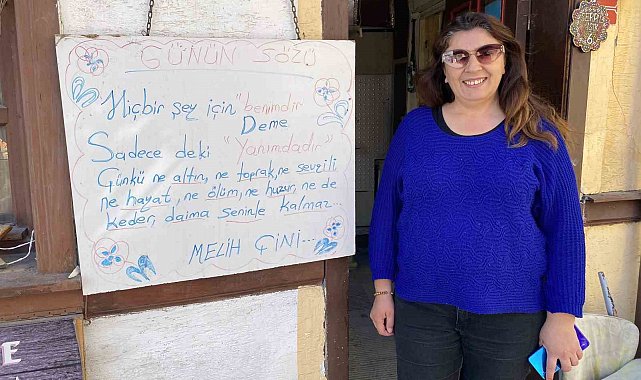 GÜNÜN SÖZÜ
Hiçbir şey için "benimdir"
Deme
Sadece deki "Yanımdadır"
Günkü ne altın, ne toprak, ne sevgili
ne hayat, ne ölüm, ne huzur, ne de
keder, daima seninle kalmaz...
MELİH ÇİNİ...